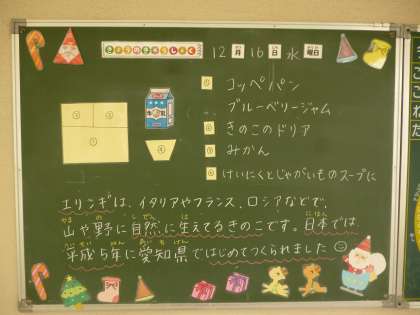 きょうのきゅうしょく
12月16日水曜日
① コッペパン
ブルーベリージャム
② きのこのドリア
③ みかん
④ けいにくとじゃがいものスープに
牛乳
エリンギは、イタリアやフランス、ロシアなどで、
山や野に自然に生えてるきのこです。日本では、
平成5年に愛知県ではじめてつくられました